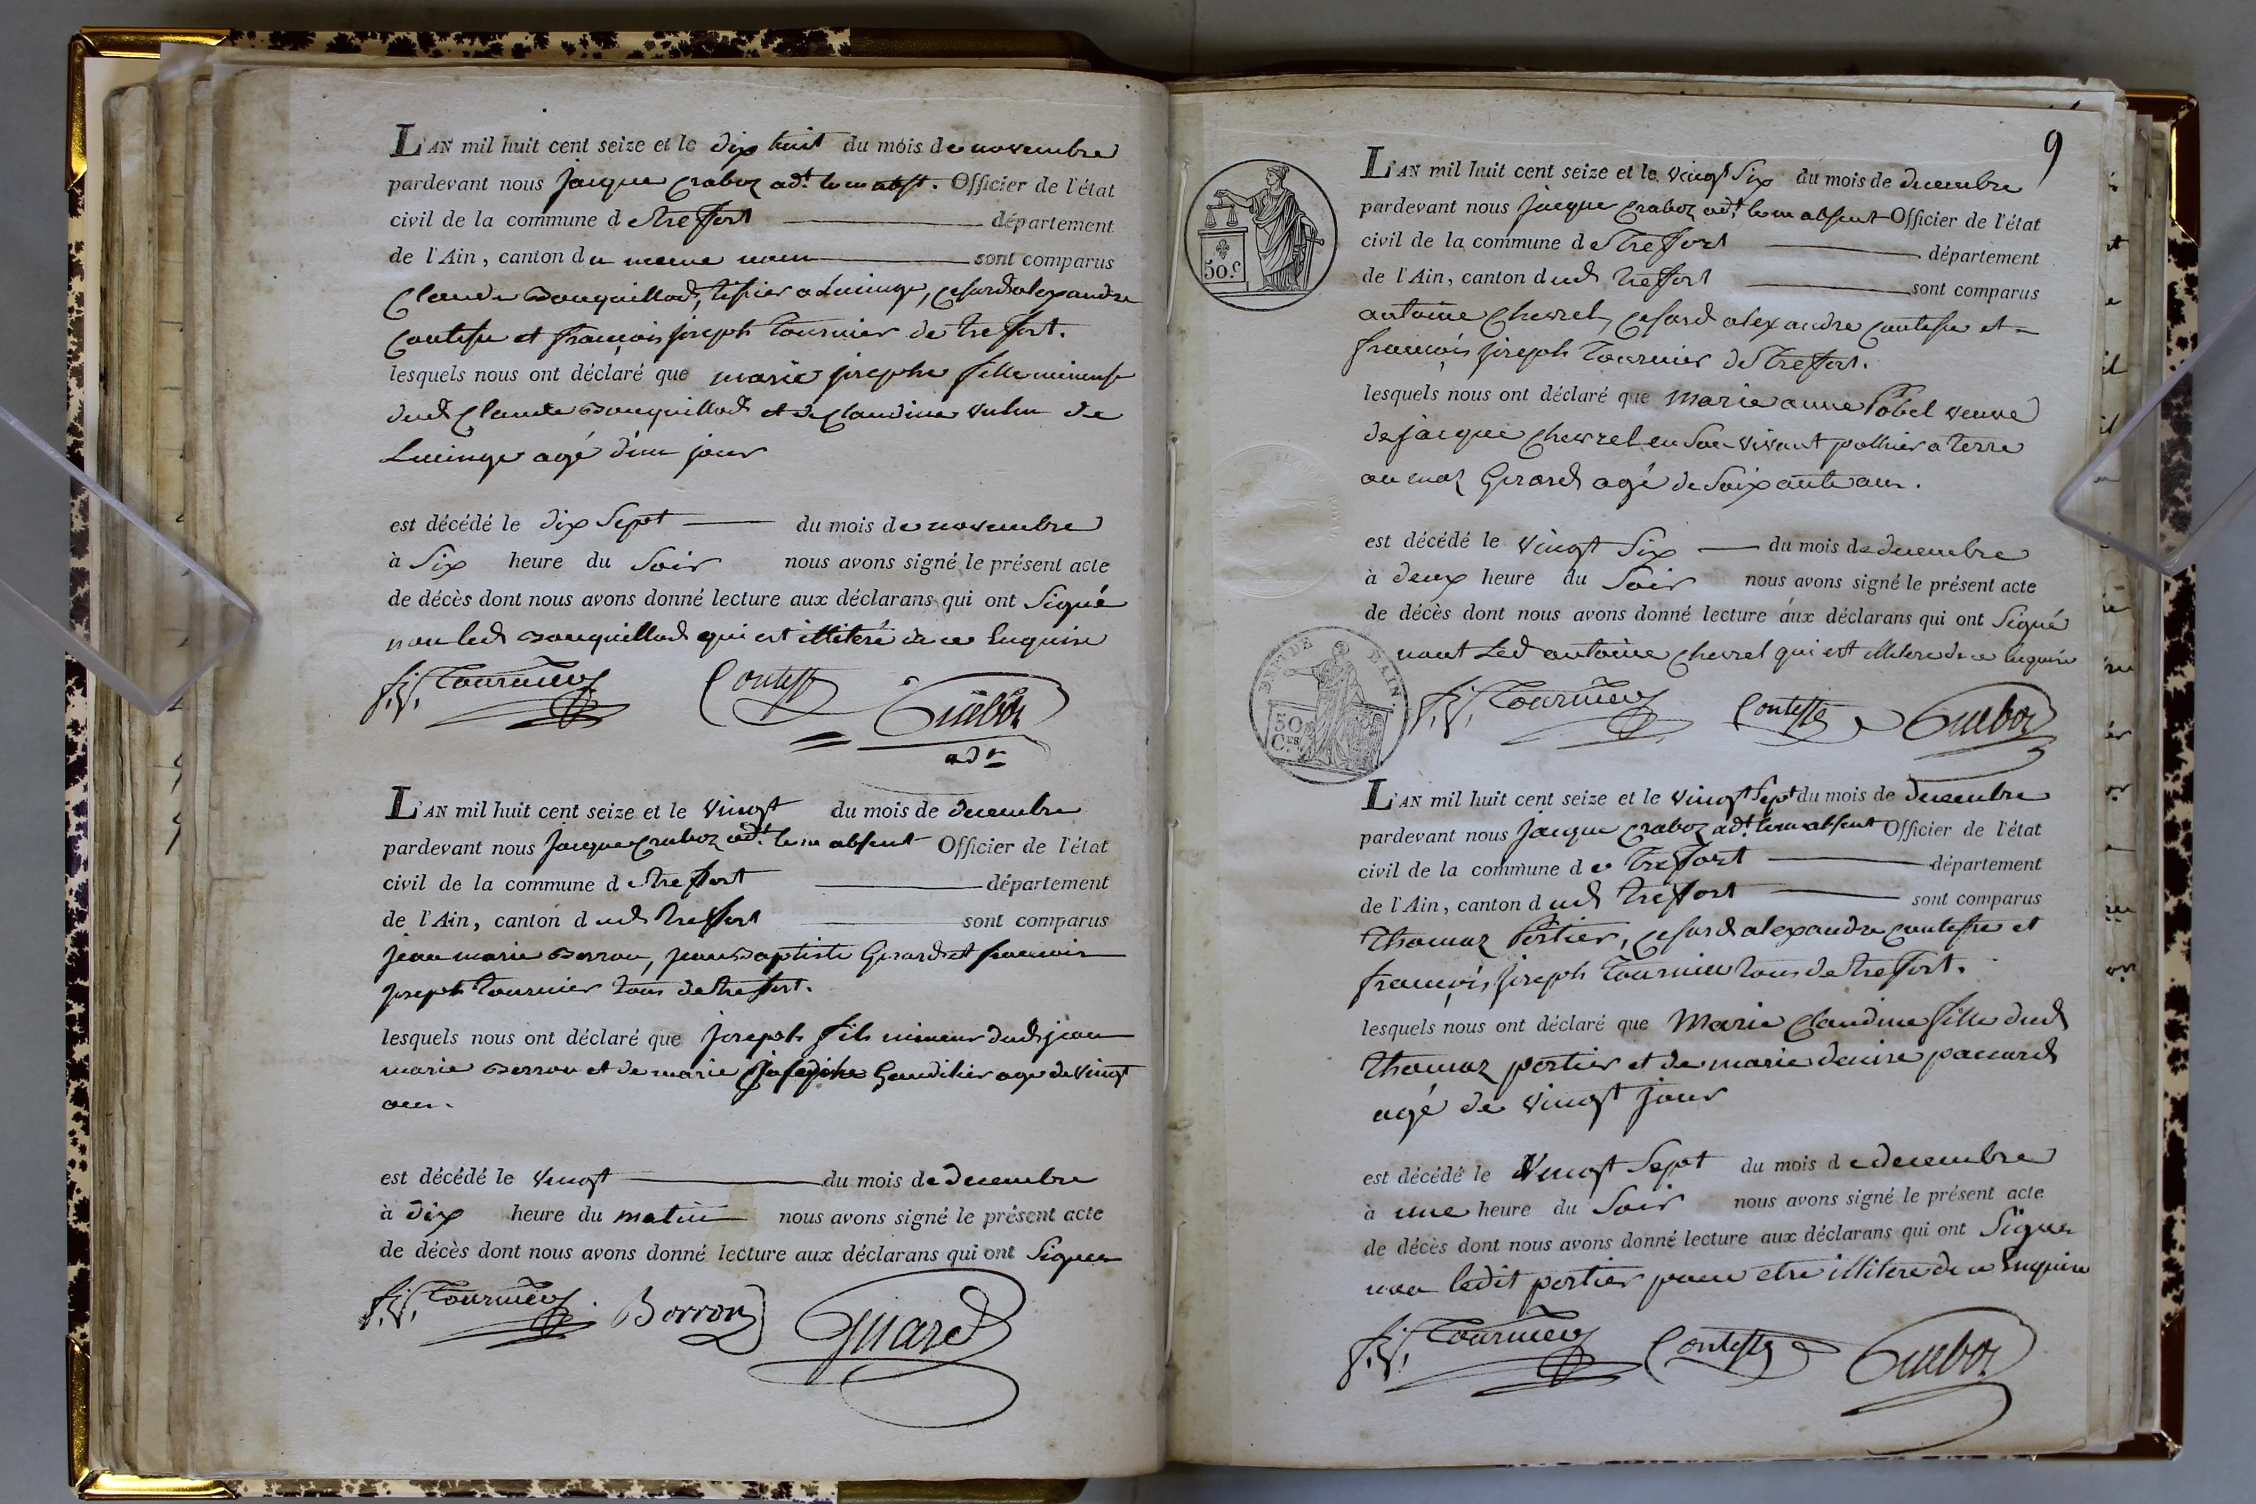 L'AN mil huit cent seize et le dix huit du mois de novembre
pardevant nous jacque Craboz adt. le m abst. Officier de l'état
civil de la commune d e treffort département
de l'Ain, canton d u meme nom sont comparus
Claude Bouquillod, tissier a Lucinge, cesard alexandre
Contesse et françois joseph Tournier de treffort.
lesquels nous ont déclaré que marie josephe fille mineuse
dud Claude Bouquillod et de Claudine de
Lucinge agé d'un jour
est décédé le dix sept du mois de novembre
à Six heure du Soir nous avons signé le présent acte
de décès dont nous avons donné lecture aux déclarans qui ont Signé
non led Bouquillod qui est illiteré de ce Enquire
f. j. Tournier Contesse
adt
L'AN mil huit cent seize et le vingt du mois de decembre
pardevant nous jacque Craboz adt. le m absent Officier de l'état
civil de la commune d e treffort département
de l'Ain, canton d ud treffort sont comparus
jean marie Borron, jean Baptiste Girard et francois
joseph Tournier tous de treffort.
lesquels nous ont déclaré que joseph fils mineur dud jean
marie Borron et de marie josephe Gaudilier age de vingt
ans.
est décédé le vingt du mois de decembre
à dix heure du matin nous avons signé le présent acte
de décès dont nous avons donné lecture aux déclarans qui ont Signer
f. j. Tournier Borron Girard
9
50.C
L'AN mil huit cent seize et le vingt Six du mois de decembre
pardevant nous jacque Craboz adt. le m absent Officier de l'état
civil de la commune d e treffort département
de l'Ain, canton d ud treffort sont comparus
antoine Chevrel, cesard alexandre contesse et
françois joseph Tournier de treffort.
lesquels nous ont déclaré que Marie anne Pobel veuve
de jacque Chevrel en Son vivant pothier a terre
au maz Girard agé de Soixante ans.
est décédé le vingt Six du mois de decembre
à deux heure du Soir nous avons signé le présent acte
de décès dont nous avons donné lecture aux déclarans qui ont Signé
nont Led antoine Chevrel qui est illitere de ce Enquire
DEP. DE L'AIN.
50
Ces
f. j. Tournier Contesse
L'AN mil huit cent seize et le vingt Sept du mois de decembre
pardevant nous jacque Craboz adt. le m absent Officier de l'état
civil de la commune d e treffort département
de l'Ain, canton d ud treffort sont comparus
Thomaz Portier, cesard alexandre contesse et
françois joseph Tournier tous de treffort.
lesquels nous ont déclaré que Marie Claudine fille dud
Thomaz portier et de marie denise panard
agé de vingt jour
est décédé le vingt Sept du mois d e decembre
à une heure du Soir nous avons signé le présent acte
de décès dont nous avons donné lecture aux déclarans qui ont Signer
non ledit portier pour etre illitere de ce Enquire
f. j. Tournier Contesse